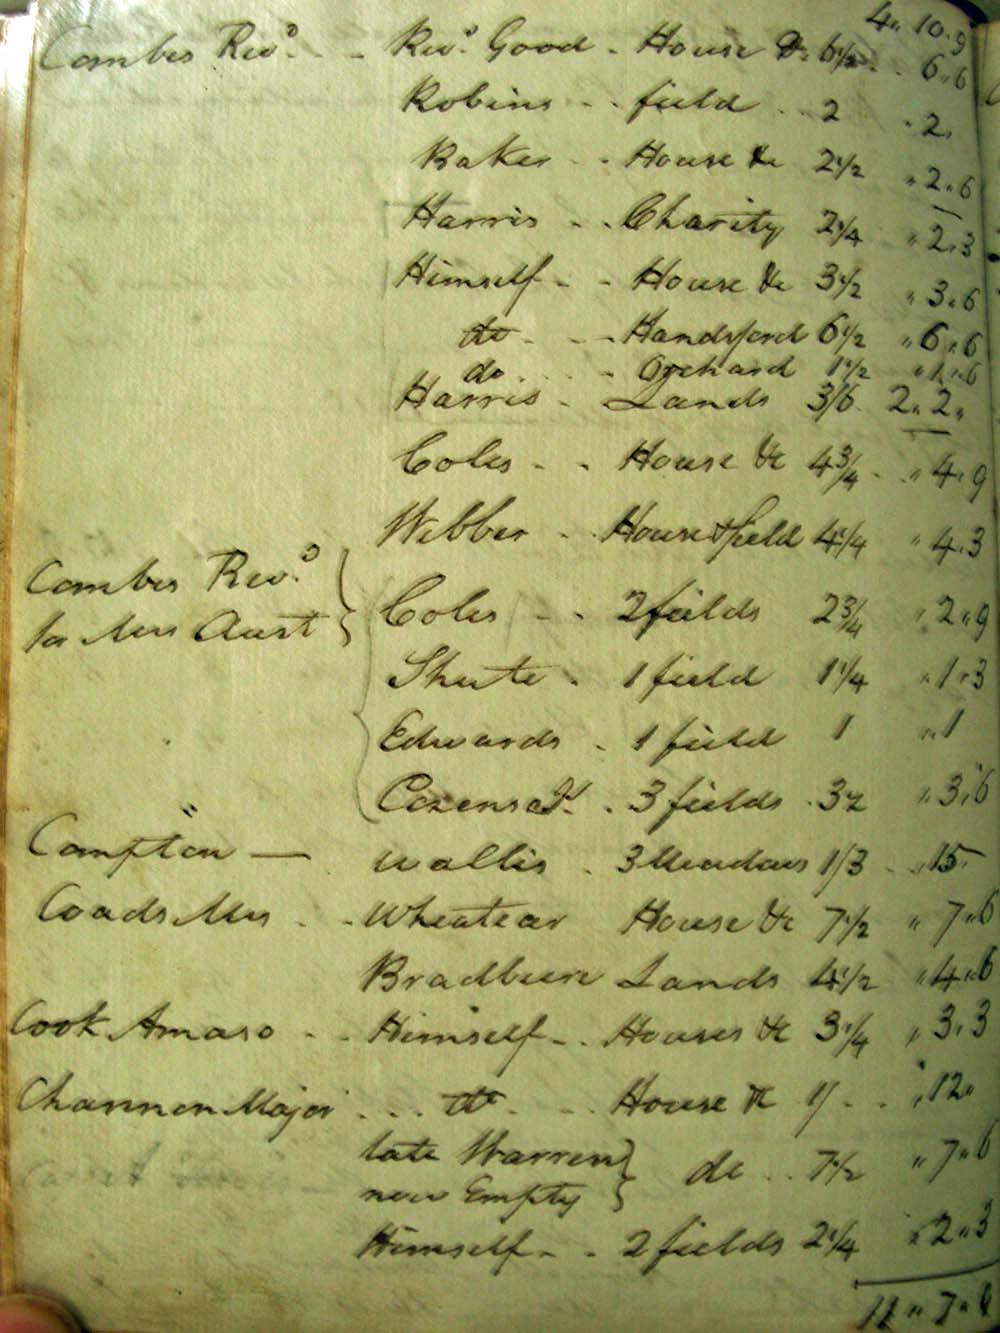 4 " 10 . 9
Combes Revd. - - Revd. Good - House &c 6 1/2 - . 6 " 6
Robins - - field . . 2 " 2 "
Baker - - House &c 2 1/2 " 2 " 6
Harris - - Charity 2 1/4 " 2 . 3
Himself - - House &c 3 1/2 " 3 . 6
do - - - Handsford 6 1/2 " 6 " 6
do . . . - Orchard 1 1/2 " 1 " 6
Harris - Lands 3/6 2 " 2 "
Coles - - House &c 4 3/4 - " 4 . 9
Webber - - House & field 4 1/4 " 4 . 3
Combes Revd.
for Mrs Aust } Coles - - 2 fields 2 3/4 " 2 " 9
Shute - 1 field 1 1/4 " 1 " 3
Edwards - 1 field 1 " 1
Cozens . 3 fields . 3 " 3 . 6
Compton — Wallis . 3 Meadows 1/3 " 15 "
Coads Mrs - - Wheatear House &c 7 1/2 " 7 " 6
Bradbeere Lands 4 1/2 " 4 " 6
Cook Amaso - - Himself - . Houses &c 3 1/4 " 3 . 3
Channon Major . . . do - . . House &c 1/ - . " 12 "
late Warren
now Empty } do . . 7 1/2 " 7 " 6
Himself - - 2 fields 2 1/4 " 2 " 3
11 " 7 "